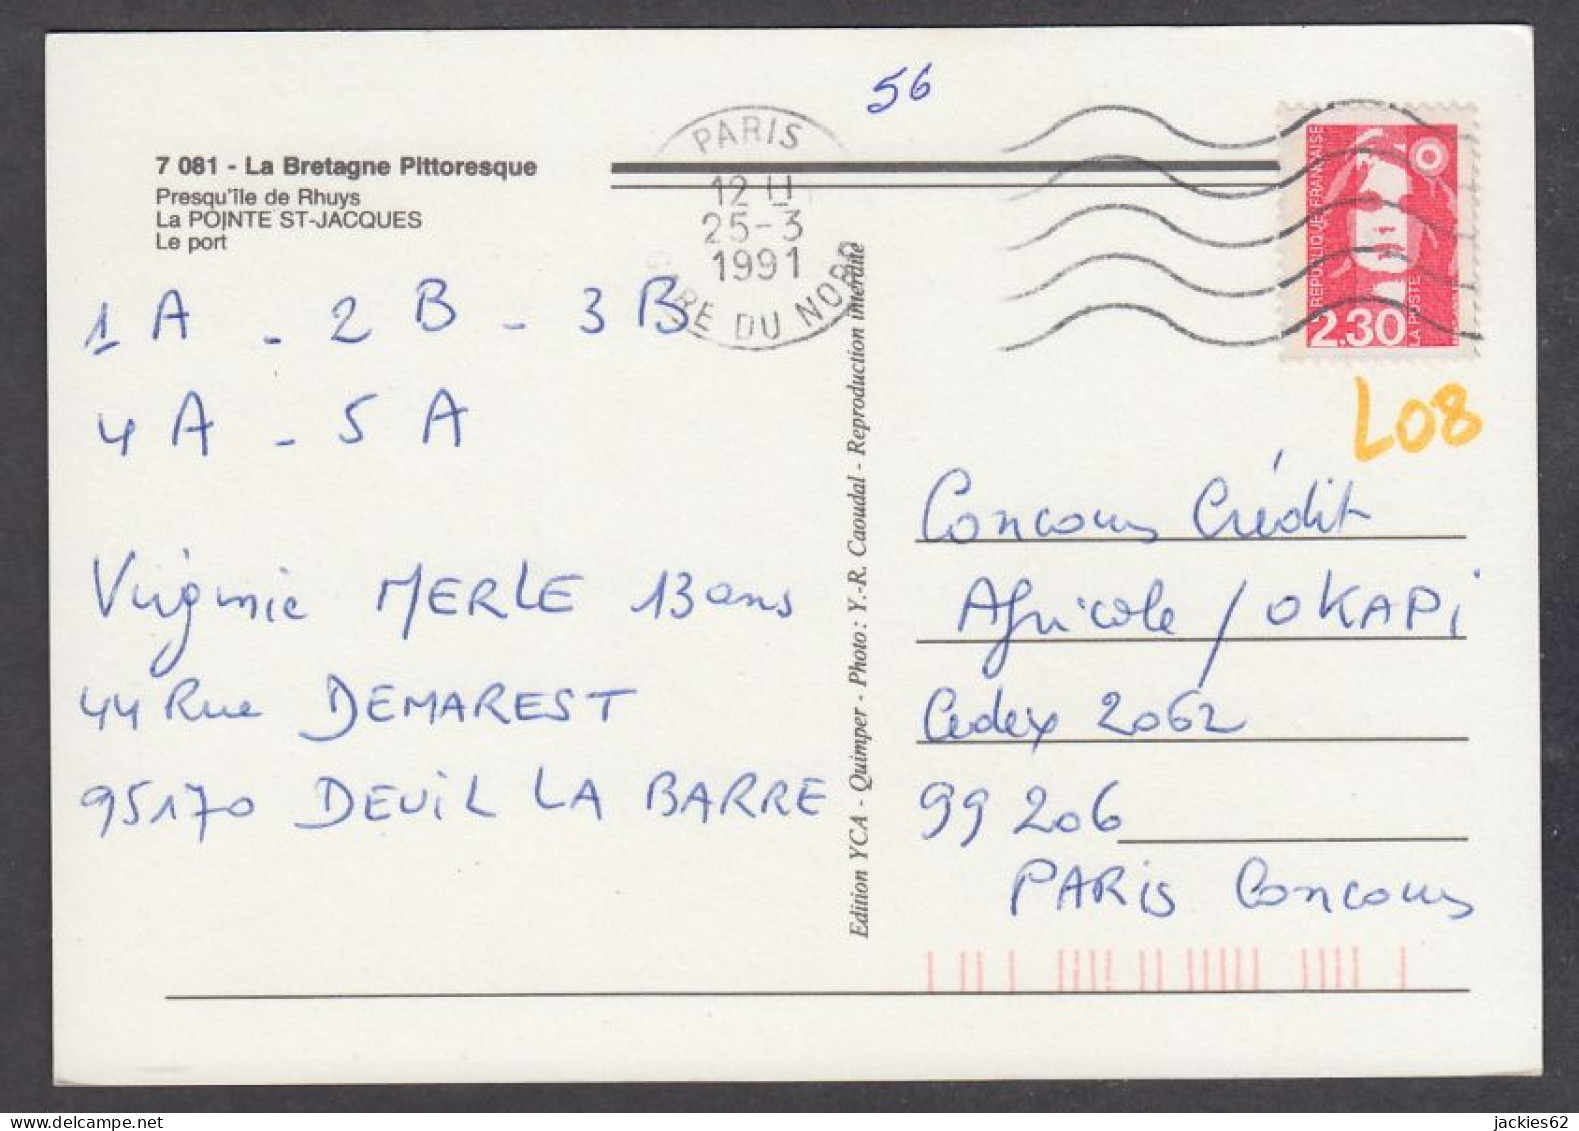 56
PARIS
12 H
25-3
1991
GARE DU NORD
7 081 - La Bretagne Pittoresque
Presqu'île de Rhuys
La POINTE ST-JACQUES
Le port
REPUBLIQUE FRANÇAISE
LA POSTE
2.30
L08
1 A - 2 B - 3 B
4 A - 5 A
Virginie MERLE 13 ans
44 Rue DEMAREST
95170 DEUIL LA BARRE
Edition YCA - Quimper - Photo : Y.-R. Caoudal - Reproduction interdite
Concours Crédit
Agricole / OKAPI
Cedex 2062
99 206
PARIS Concours
jackies62